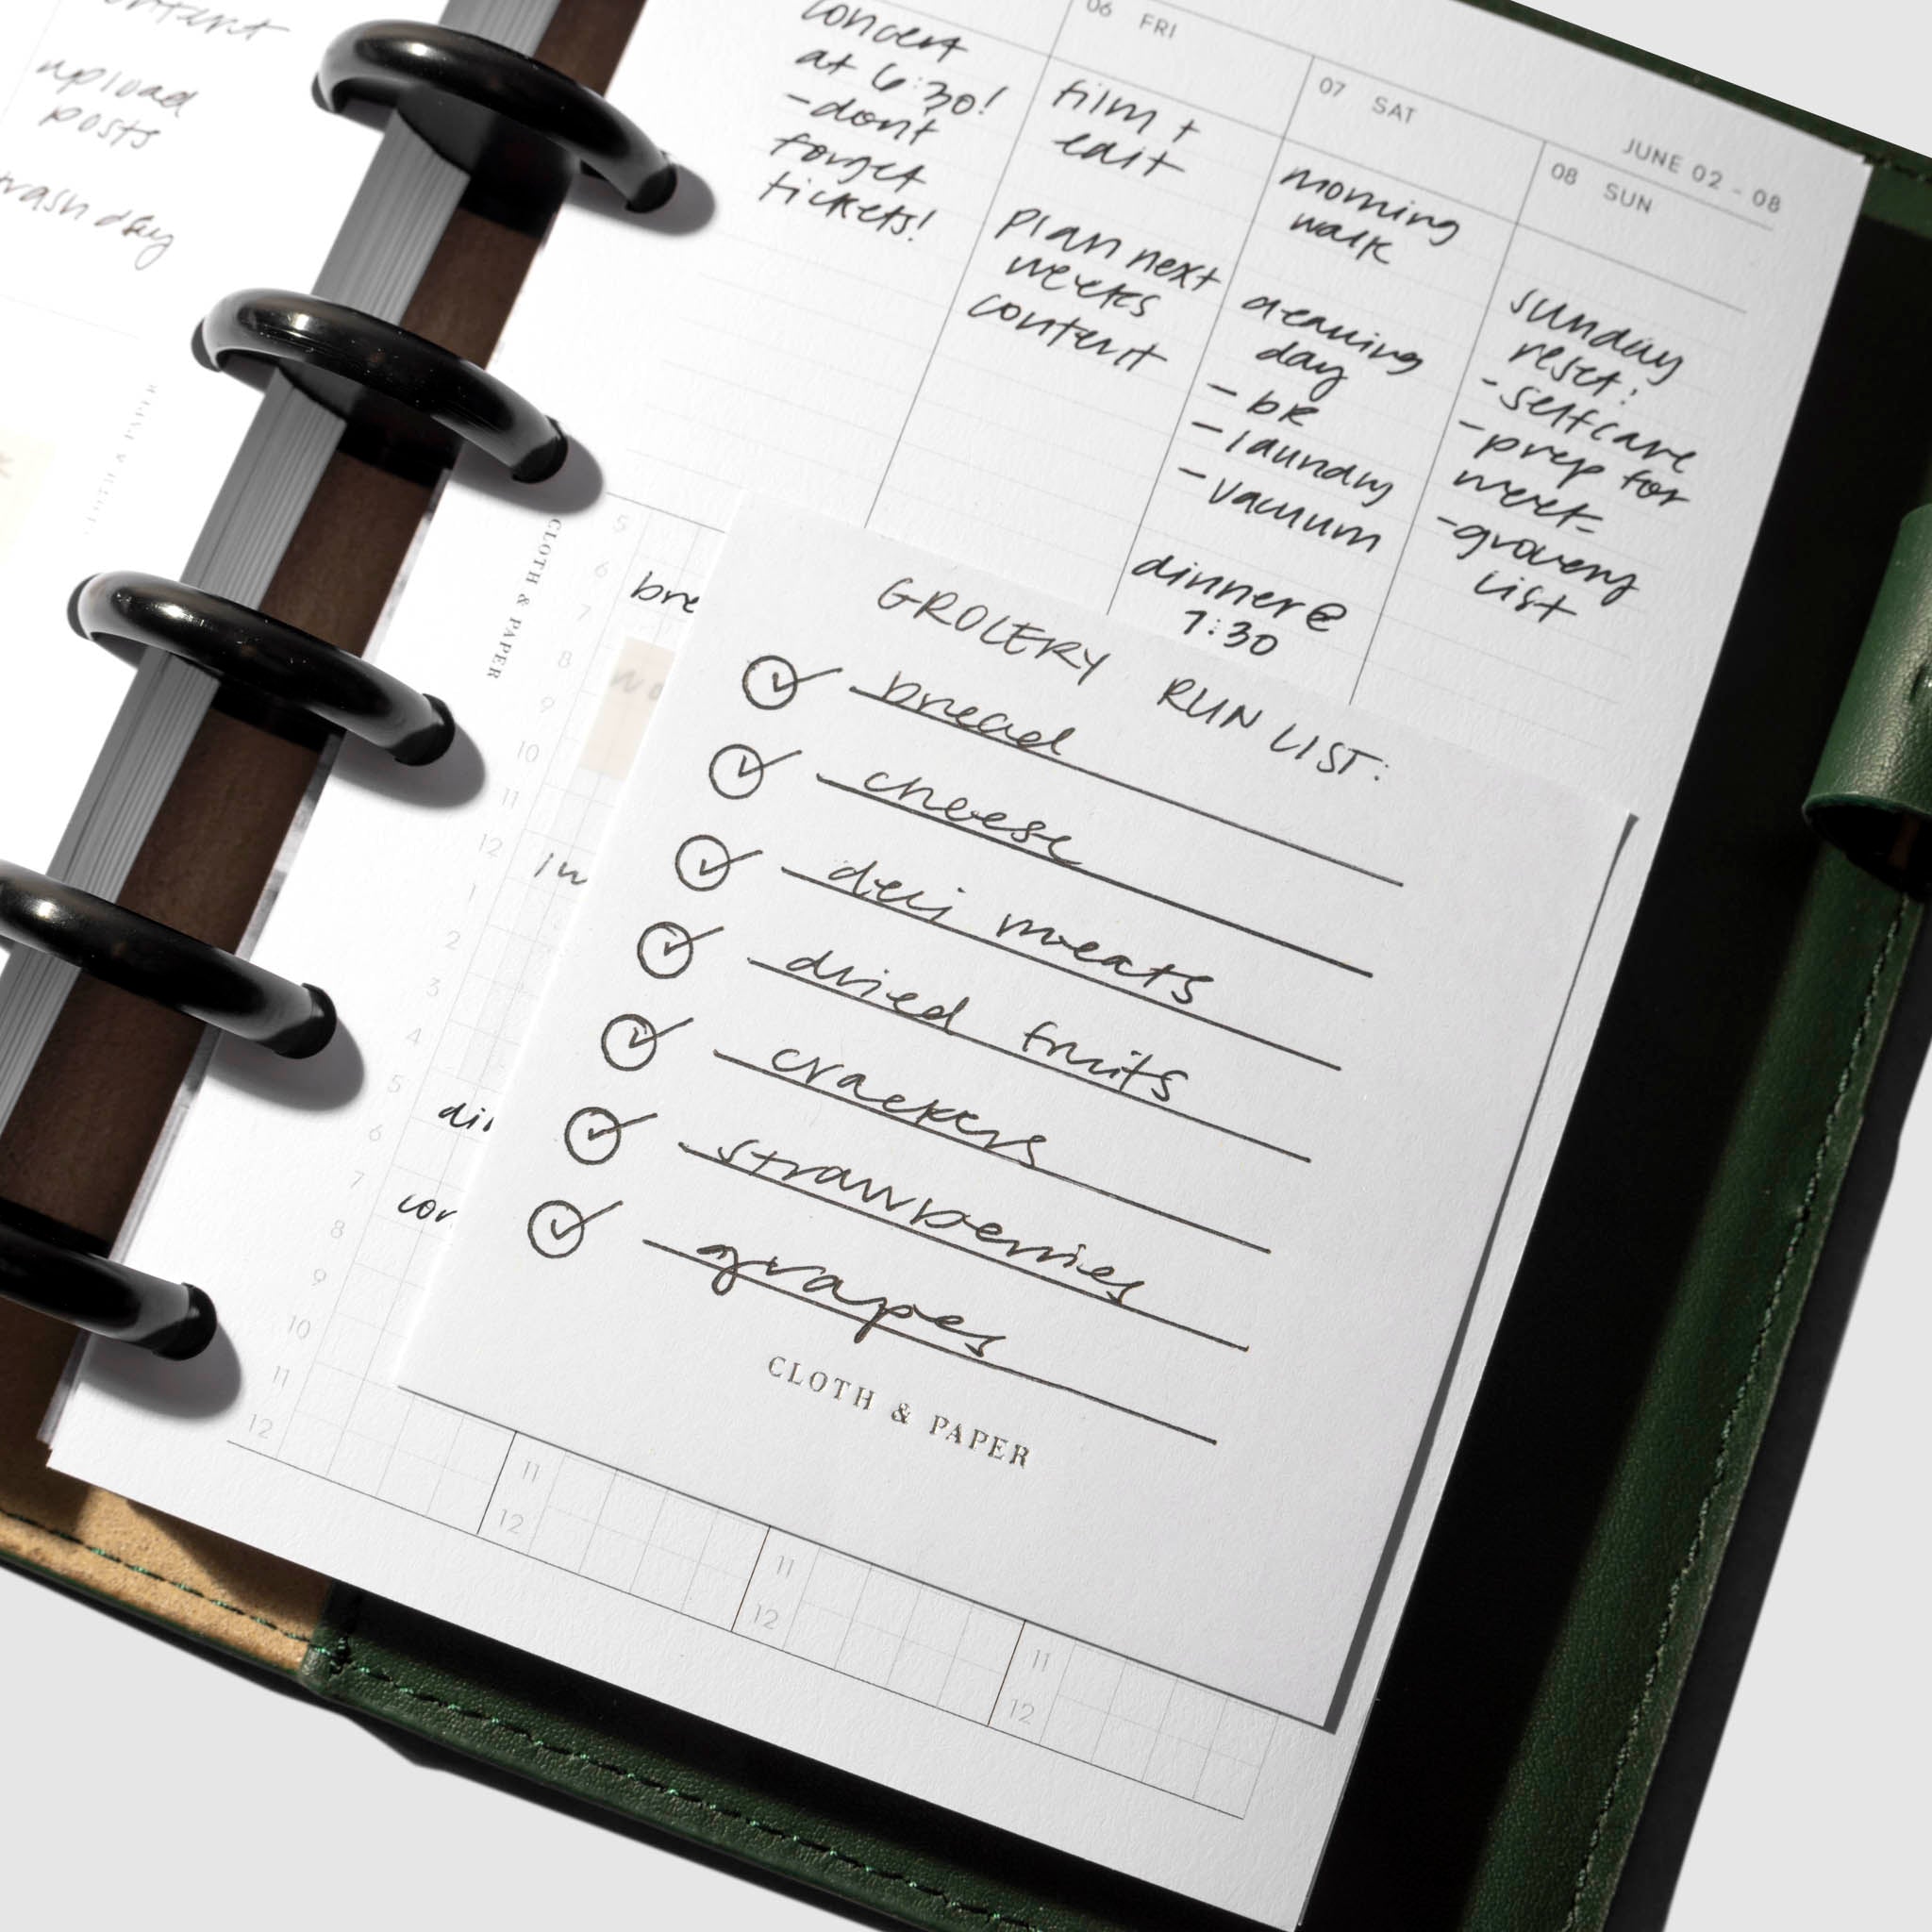 upload
posts
trash day
CLOTH & PAPER
JUNE 02 - 08
concert
at 6:30!
-dont
forget
tickets!
06 FRI
film +
edit
plan next
weeks
content
07 SAT
morning
walk
cleaning
day
- br
- laundry
- vacuum
dinner @
7:30
08 SUN
sunday
reset:
- selfcare
- prep for
week
- grocery
list
5
6
7
8
9
10
11
12
1
2
3
4
5
6
7
8
9
10
11
12
GROCERY RUN LIST:
bread
cheese
deli meats
dried fruits
crackers
strawberries
grapes
CLOTH & PAPER
11
12
11
12
11
12